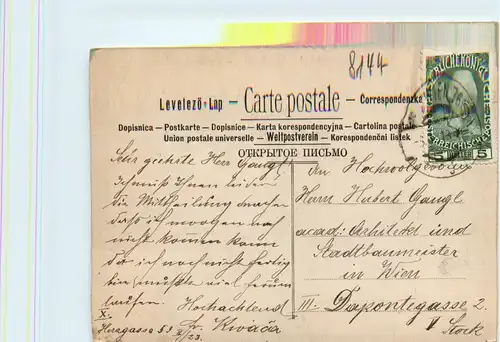 8144
Levelező-Lap – Carte postale – Correspondenzkarte
Dopisnica – Postkarte – Dopisnice – Karta korespondencyjna – Cartolina postale
Union postale universelle – Weltpostverein – Korespondenční lístek
ОТКРЫТОЕ ПИСЬМО
5 5
Sehr geehrte Herr Gangl
Ich muß Ihnen leider
die Mittheilung machen
daß ich morgen noch
nicht kommen kann
da ich noch nicht fertig
bin mußte viel herum
laufen.
Hochachtend
Fr. Kovačič
X.
Herzgasse
An Hochwohlgeboren
Herrn Hubert Gangl
acad: Arhitekt und
Stadtbaumeister
in Wien
III. Dapontegasse 2.
V Stock